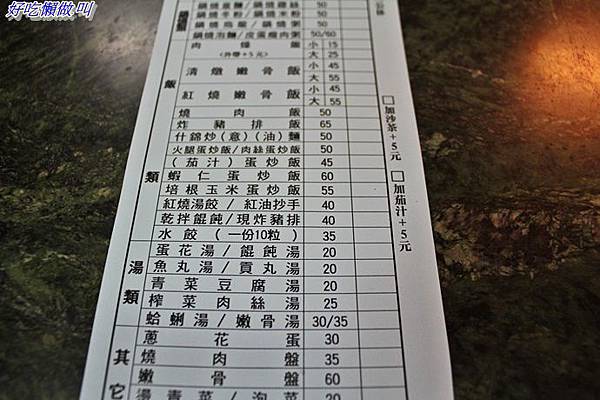 好吃懶做叫
鍋燒意麵/鍋燒雞絲 50
鍋燒冬粉/鍋燒米粉 50
鍋燒烏龍/鍋燒粥 50
鍋燒泡麵/皮蛋瘦肉粥 50/60
飯類
肉燥飯 小 15
(外帶+5元) 大 25
清燉嫩骨飯 小 45
大 55
紅燒嫩骨飯 小 45
大 55
燒肉飯 50
炸豬排飯 65
什錦炒(意)(油)麵 50
火腿蛋炒飯/肉絲蛋炒飯 50
(茄汁)蛋炒飯 45
蝦仁蛋炒飯 60
培根玉米蛋炒飯 55
紅燒湯餃/紅油抄手 40
乾拌餛飩/現炸豬排 40
水餃(一份10粒) 35
湯類
蛋花湯/餛飩湯 20
魚丸湯/貢丸湯 20
青菜豆腐湯 20
榨菜肉絲湯 25
蛤蜊湯/嫩骨湯 30/35
其它
蔥花蛋 30
燒肉盤 35
嫩骨盤 60
燙青菜/泡菜 20
□加沙茶+5元
□加茄汁+5元